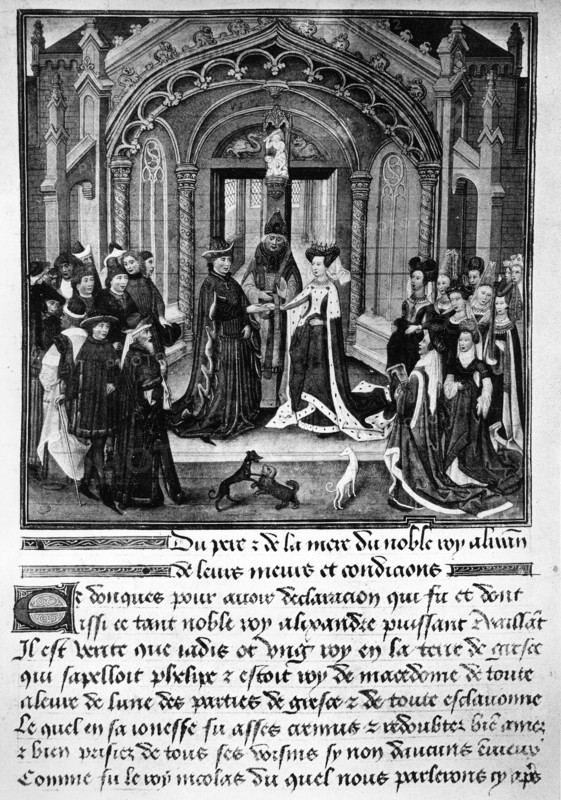 Du pere & de la mere du noble roy alixan
de leurs meurs et condicions
Et donques pour avoir declaracion qui fu et dont
issi ce tant noble roy alixandre puissant & vaillāt
Il est verite que iadis ot ung roy en la terre de gresce
qui sapelloit phelipe & estoit roy de macedome de toute
aleure de lune des parties de gresce & de toute esclavonne
Le quel en sa ionesse fu asses cremus & redoubtez biē amez
& bien prisiez de tous ses voisins sy non daucuns
Comme fu le roy nicolas du quel nous parlerons cy aps